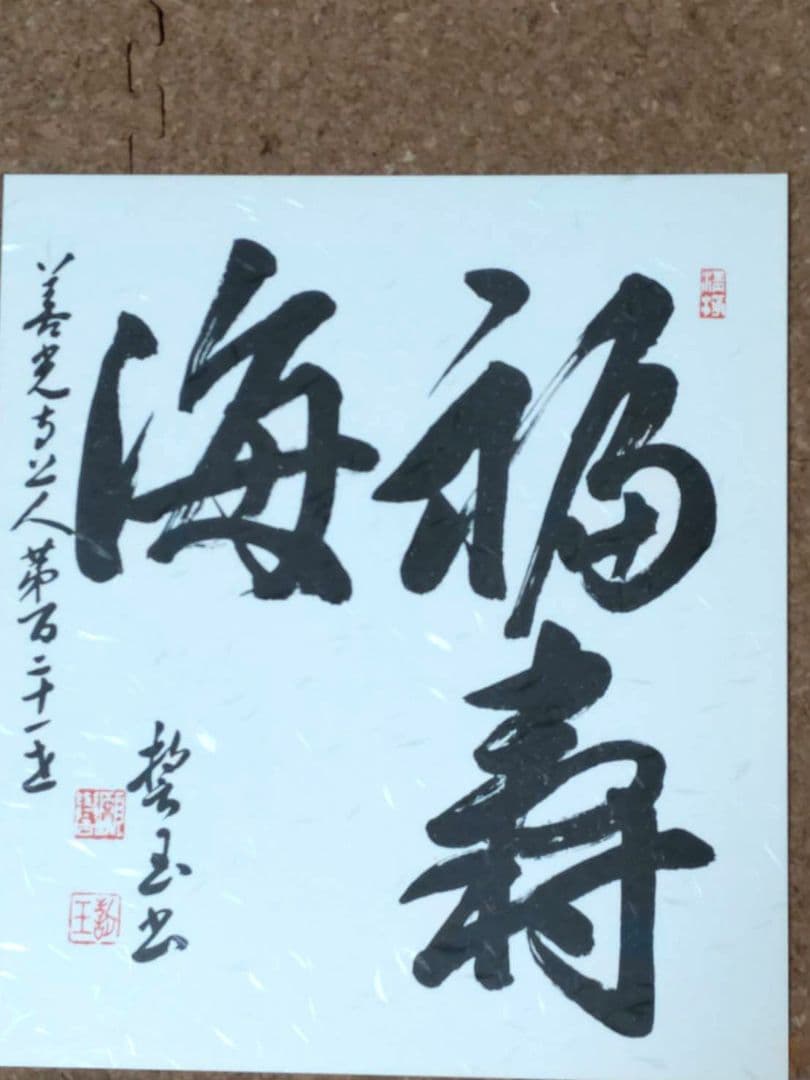 福寿
海
善光寺上人第百二十一世
誓玉書